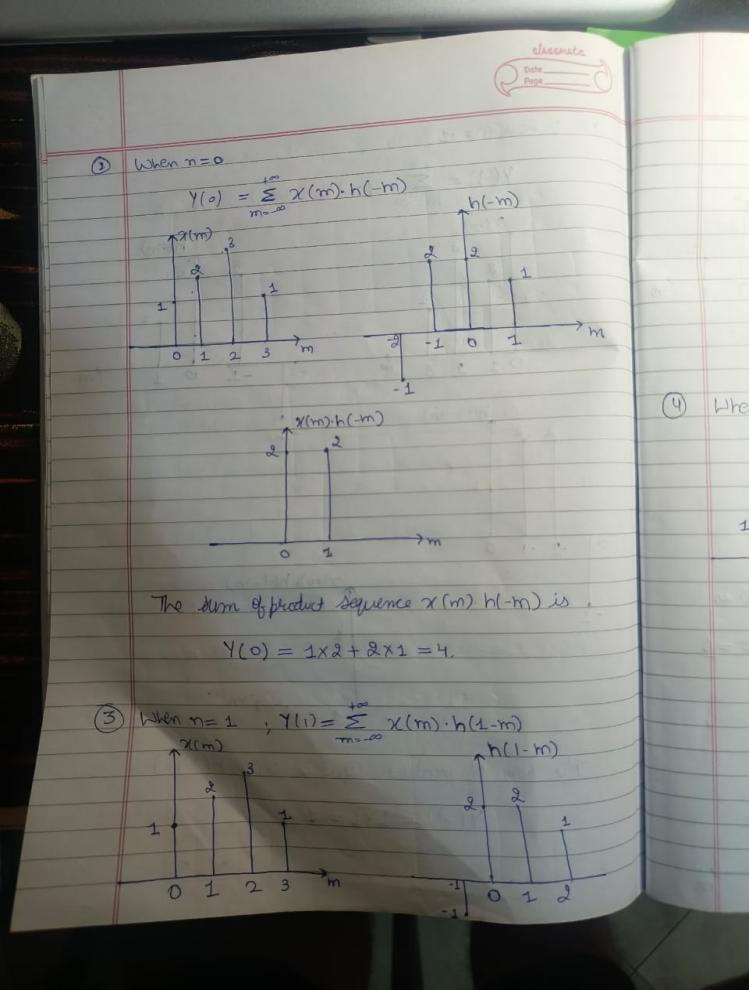 classmate
Date
Page
② When n=0
Y(0) = Σ x(m)·h(-m)
+∞
m=-∞
x(m)
3
2
1
1
0 1 2 3 m
h(-m)
2
2
1
-2 -1 0 1 m
-1
x(m)·h(-m)
2
2
0 1 m
The sum of product sequence x(m) h(-m) is
Y(0) = 1×2 + 2×1 = 4.
③ When n=1 ; Y(1) = Σ x(m)·h(1-m)
+∞
m=-∞
x(m)
3
2
1
1
0 1 2 3 m
h(1-m)
2
2
1
-1 0 1 2
-1
④ Whe
1